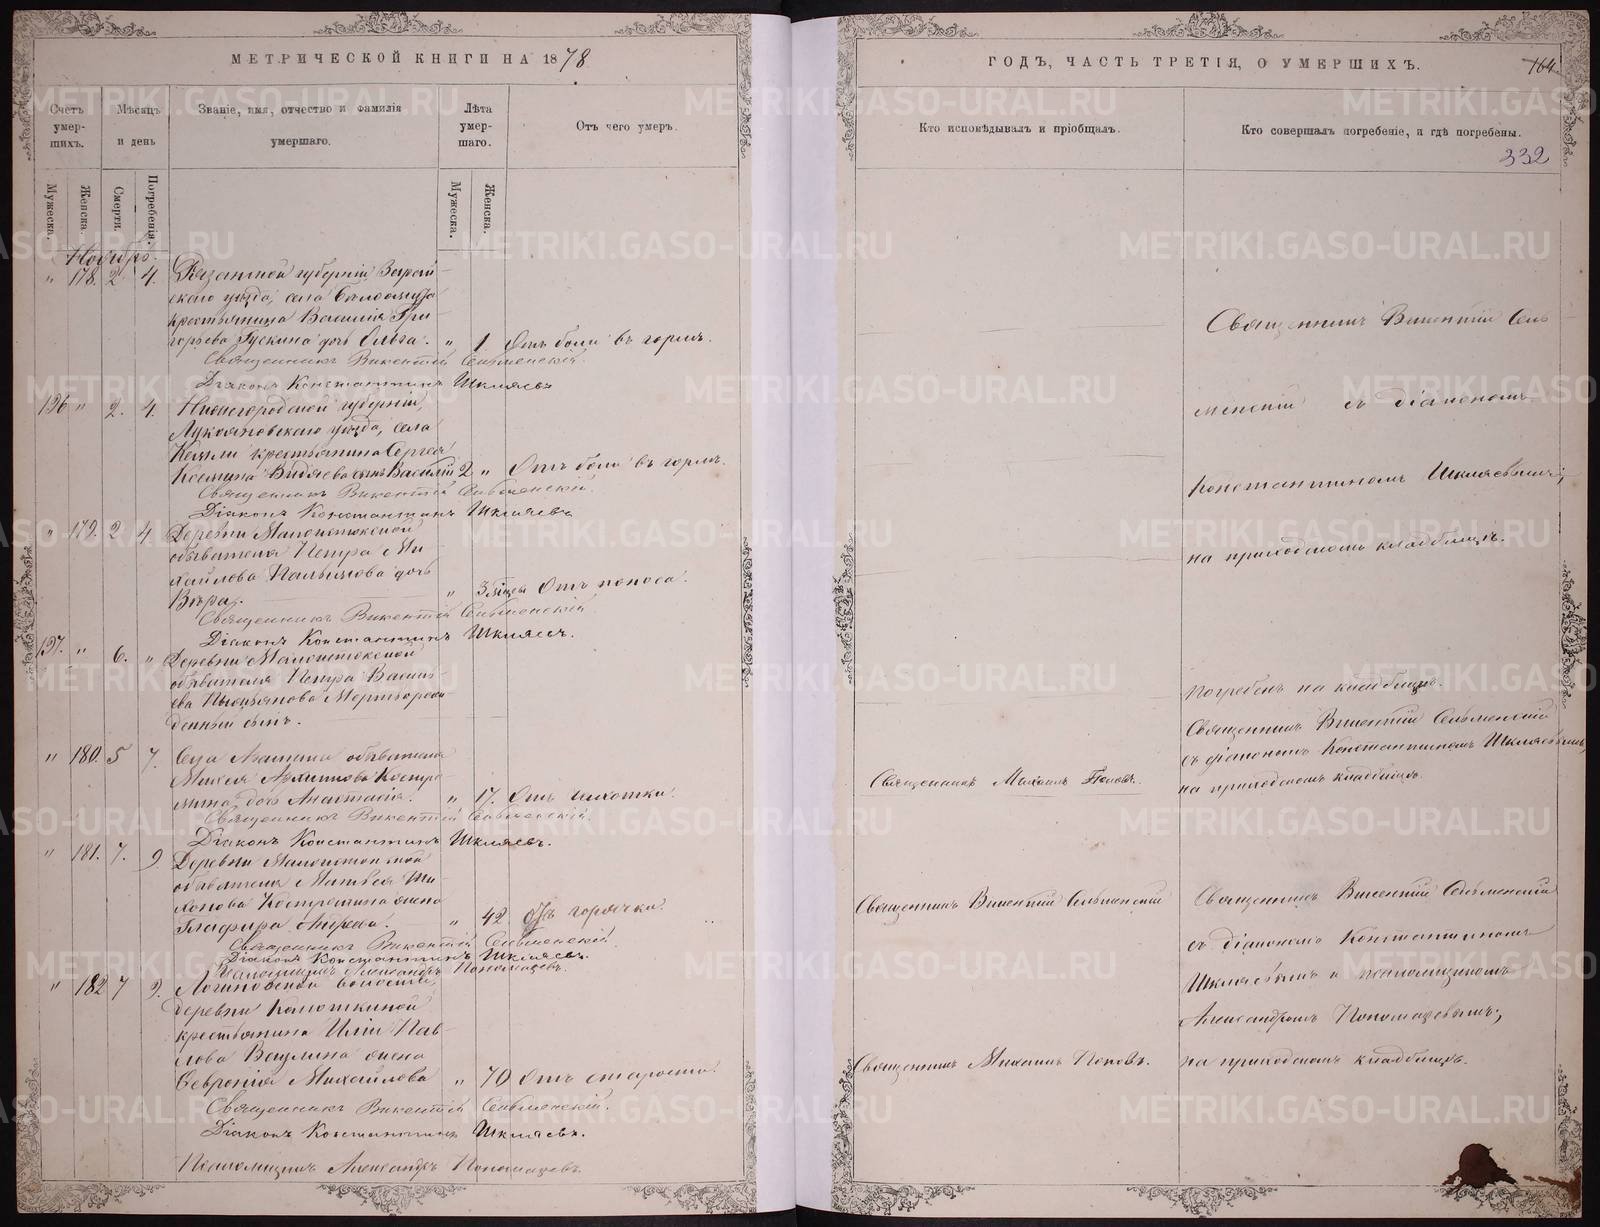 МЕТРИЧЕСКОЙ КНИГИ НА 1878
Счетъ умер-шихъ.
Мѣсяцъ и день
Званіе, имя, отчество и фамилія умершаго.
Лѣта умер-шаго.
Отъ чего умеръ.
Мужеска.
Женска.
Смерти.
Погребенія.
Мужеска.
Женска.
Ноябрь.
" 178. 2 4. Рязанской губерніи Зарай-
скаго уѣзда, села
крестьянина Василія Гри-
горьева дочь Ольга. " 1 Отъ боли въ горлѣ.
Священникъ Викентій Сельменскій.
Діаконъ Константинъ Шкляевъ
126 " 2. 4. Нижегородской губерніи,
Лукояновскаго уѣзда, села
крестьянина Сергея
Видяева сынъ Василій 2 " Отъ боли въ горлѣ.
Священникъ Викентій Сельменскій.
Діаконъ Константинъ Шкляевъ
" 179. 2 4 Деревни
обывателя Петра Ми-
хайлова дочь
Вѣра. " 3 Отъ поноса.
Священникъ Викентій Сельменскій
Діаконъ Константинъ Шкляевъ.
127. " 6. " Деревни
обывателя Петра Василь-
ева Мертворож-
денный сынъ.
" 180. 5 7. Села обывателя
дочь Анастасія. " 17. Отъ чахотки.
Священникъ Викентій Сельменскій.
Діаконъ Константинъ Шкляевъ.
" 181. 7. 9 Деревни
обывателя Матвея Ти-
хонова Костромина жена
Глафира " 42. Отъ горячки.
Священникъ Викентій Сельменскій
Діаконъ Константинъ Шкляевъ.
Псаломщикъ Александръ Пономаревъ.
" 182 7 9. Логиновской волости,
деревни
крестьянина Иліи Пав-
лова жена
Февронія Михайлова " 70 Отъ старости.
Священникъ Викентій Сельменскій.
Діаконъ Константинъ Шкляевъ.
Псаломщикъ Александръ Пономаревъ
ГОДЪ, ЧАСТЬ ТРЕТІЯ, О УМЕРШИХЪ.
164.
Кто исповѣдывалъ и пріобщалъ.
Кто совершалъ погребеніе, и гдѣ погребены.
332
Священникъ Викентій Сель
менскій съ діакономъ
Константиномъ Шкляевымъ,
на приходскомъ кладбищѣ.
Погребенъ на кладбищѣ.
Священникъ Викентій Сельменскій
съ діакономъ Константиномъ Шкляевымъ,
Священникъ Михаилъ Поповъ.
на приходскомъ кладбищѣ.
Священникъ Викентій Сельменскій
Священникъ Викентій Сельменскій
съ діакономъ Константиномъ
Шкляевымъ и псаломщикомъ
Александромъ Пономаревымъ,
Священникъ Михаилъ Поповъ.
на приходскомъ кладбищѣ.
METRIKI.GASO-URAL.RU